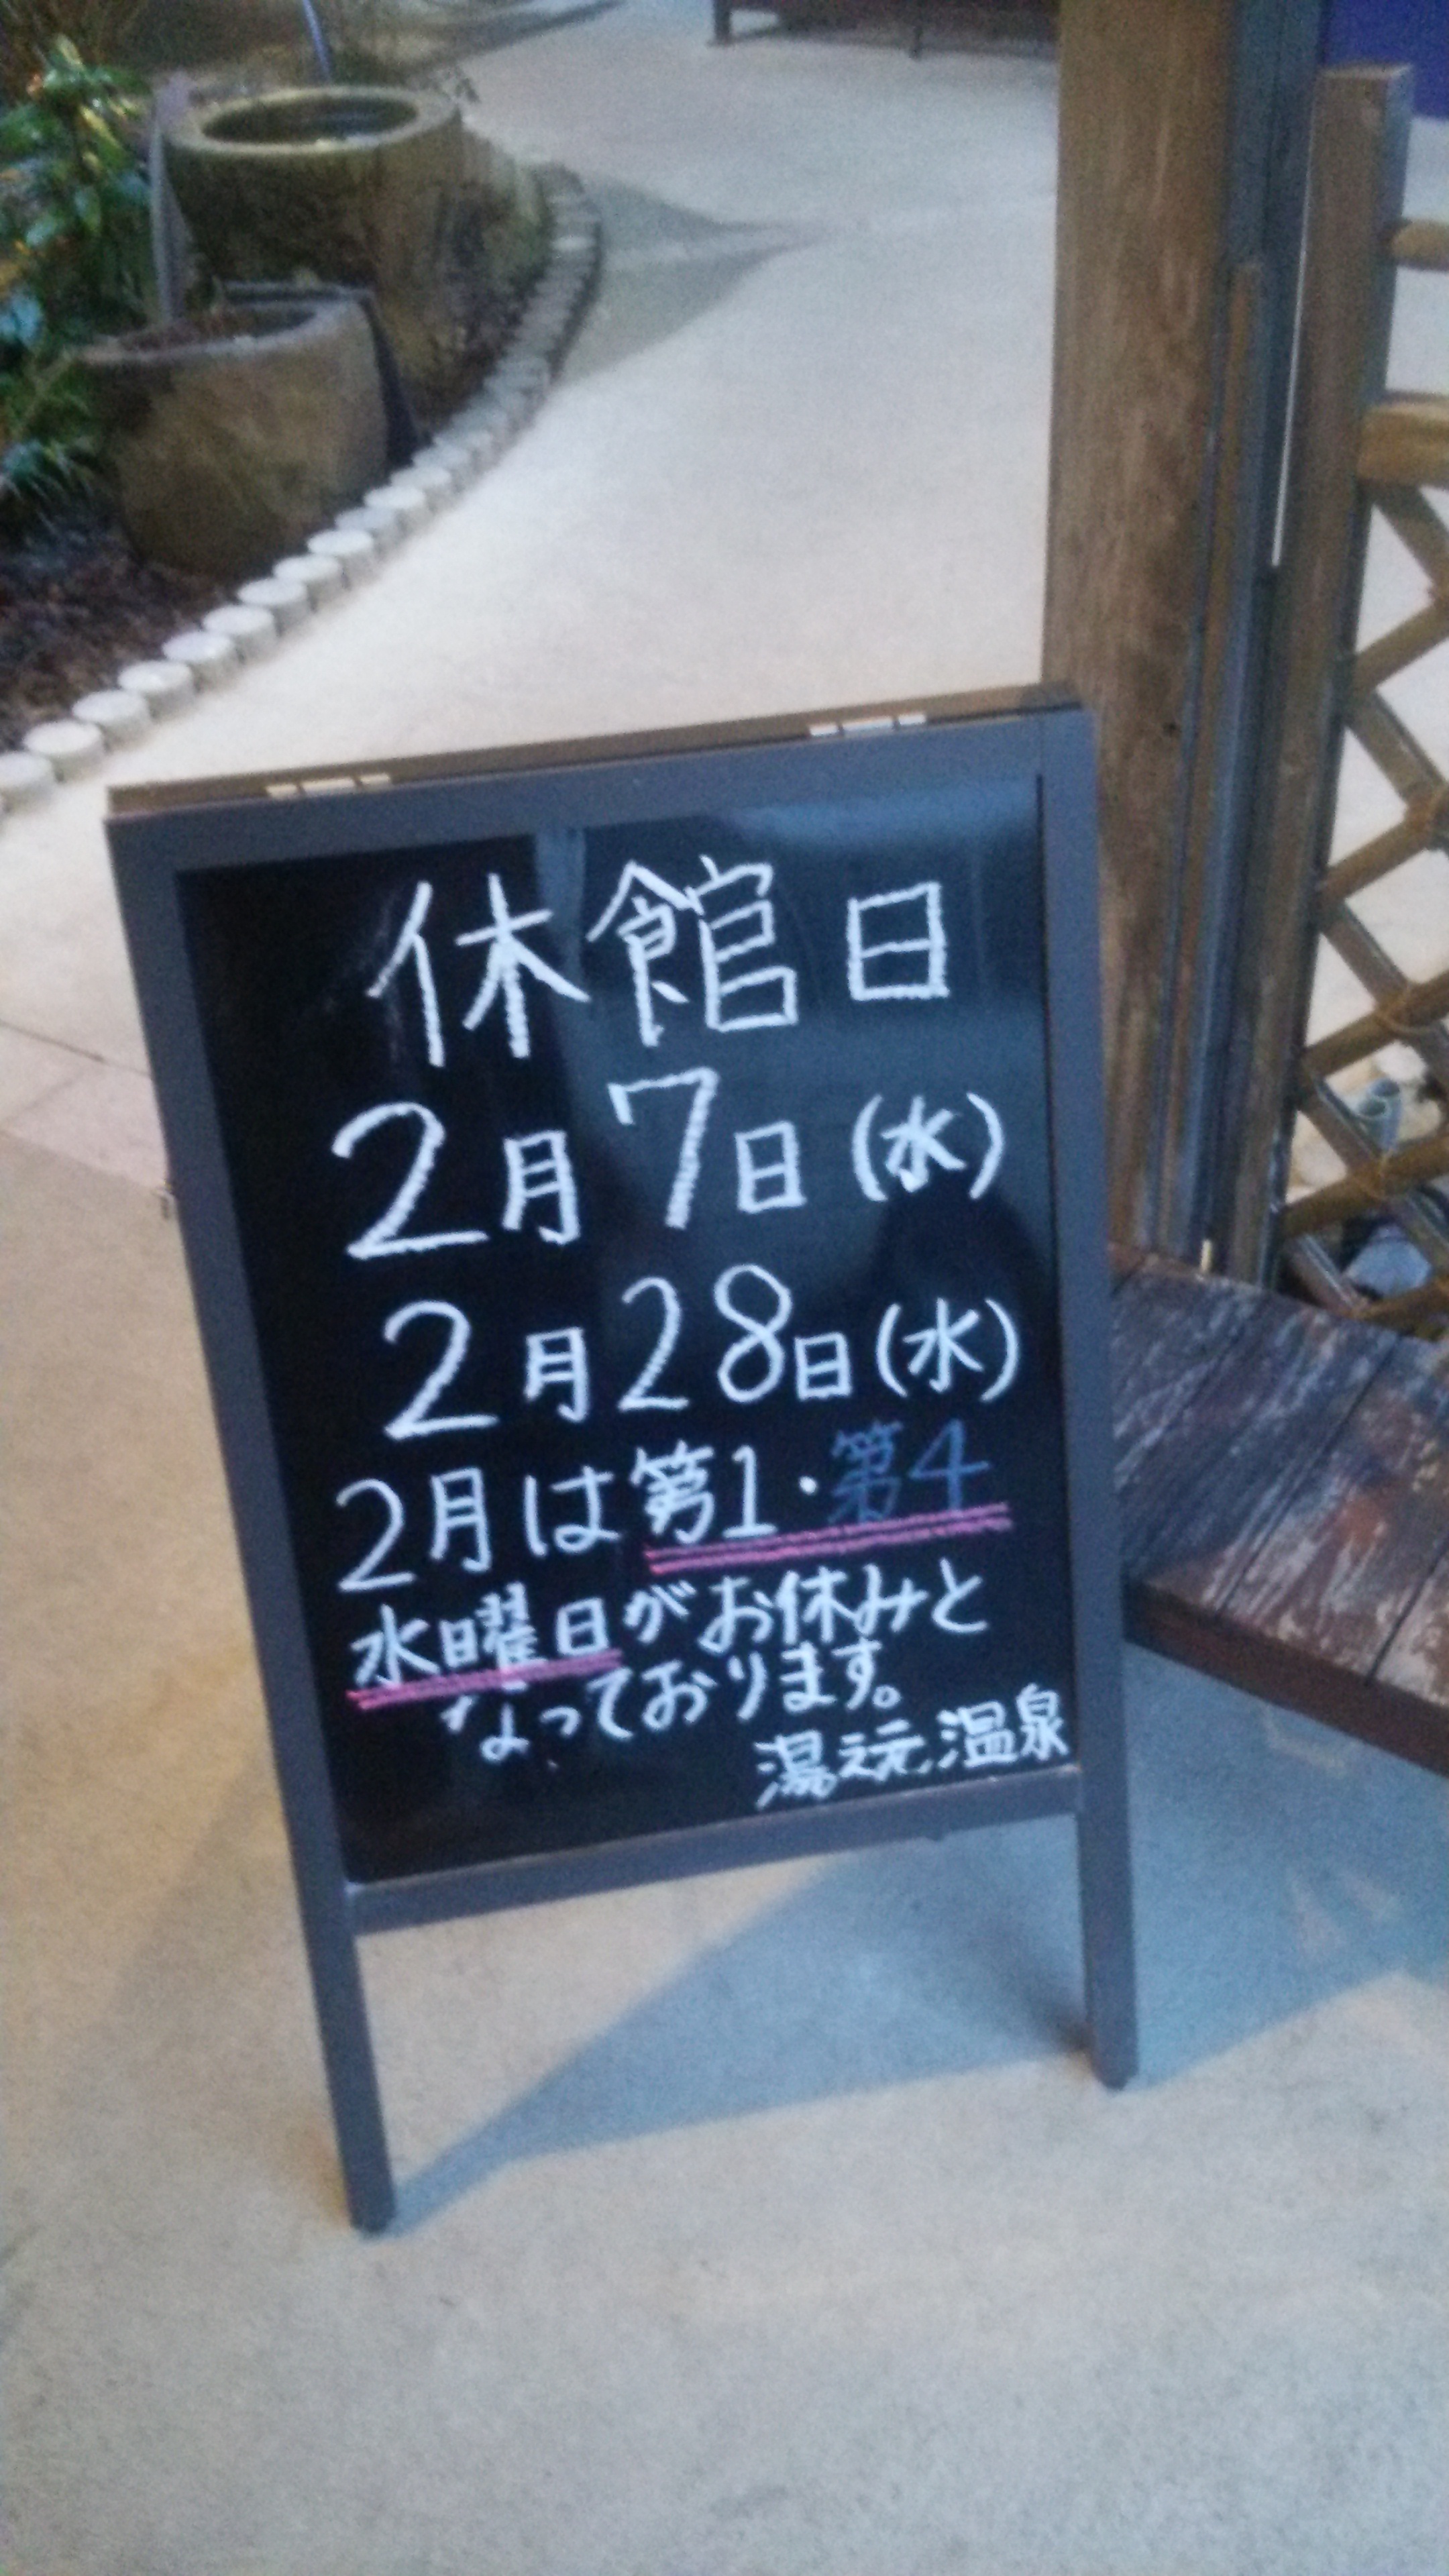 休館日
2月7日(水)
2月28日(水)
2月は第1・第4
水曜日がお休みと
なっております。
湯之元温泉